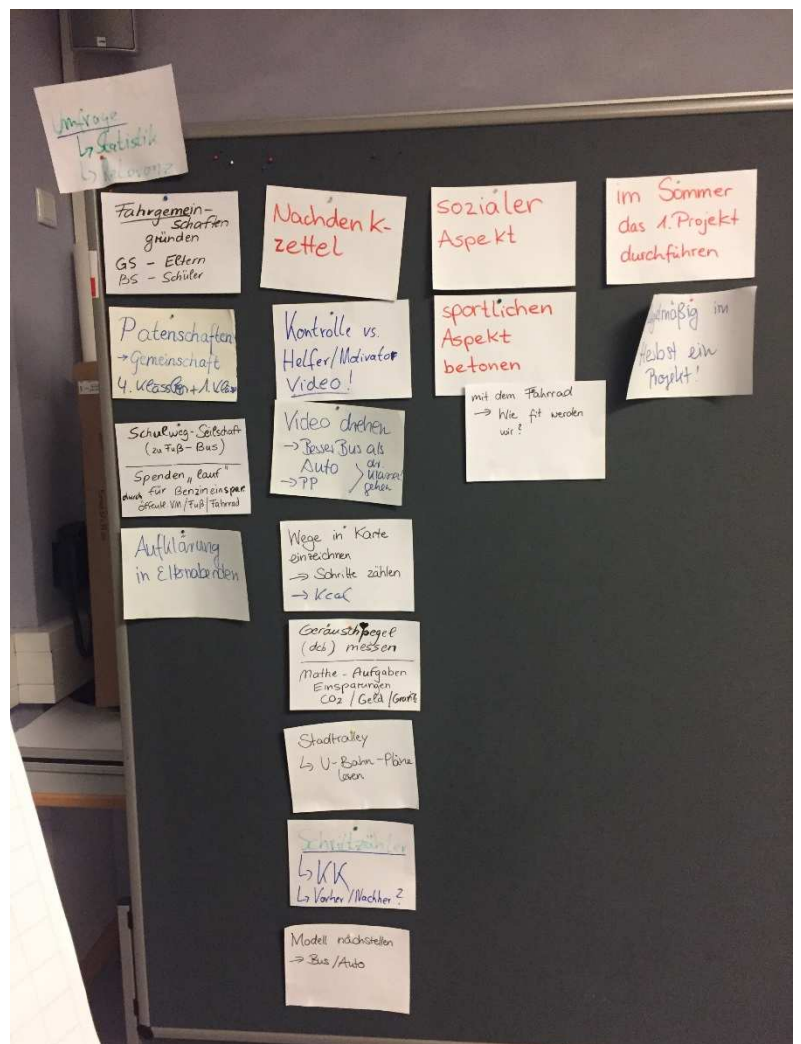 Umfrage
↳ Statistik
↳ Relevanz
Fahrgemein-
schaften
gründen
GS - Eltern
BS - Schüler
Patenschaften
→ Gemeinschaft
4. Klassen + 1. Klasse
Schulweg-Seilschaft
(zu Fuß - Bus)
Spenden "lauf"
durch für Benzineinspar
öffentl. VM/Fuß/Fahrrad
Aufklärung
in Elternabenden
Nachdenk-
zettel
Kontrolle vs.
Helfer/Motivator
Video!
Video drehen
→ Besser Bus als
Auto
→ PP
dr. Klassen
gehen
Wege in Karte
einzeichnen
→ Schritte zählen
→ Kcal
Geräuschpegel
(dcb) messen
Mathe - Aufgaben
Einsparungen
CO2 / Geld / Grafik
Stadtralley
↳ U-Bahn-Pläne
lesen
Schrittzähler
↳ KK
↳ Vorher/Nachher?
Modell nachstellen
→ Bus / Auto
sozialer
Aspekt
sportlichen
Aspekt
betonen
mit dem Fahrrad
→ Wie fit werden
wir?
im Sommer
das 1. Projekt
durchführen
im
Herbst ein
Projekt!